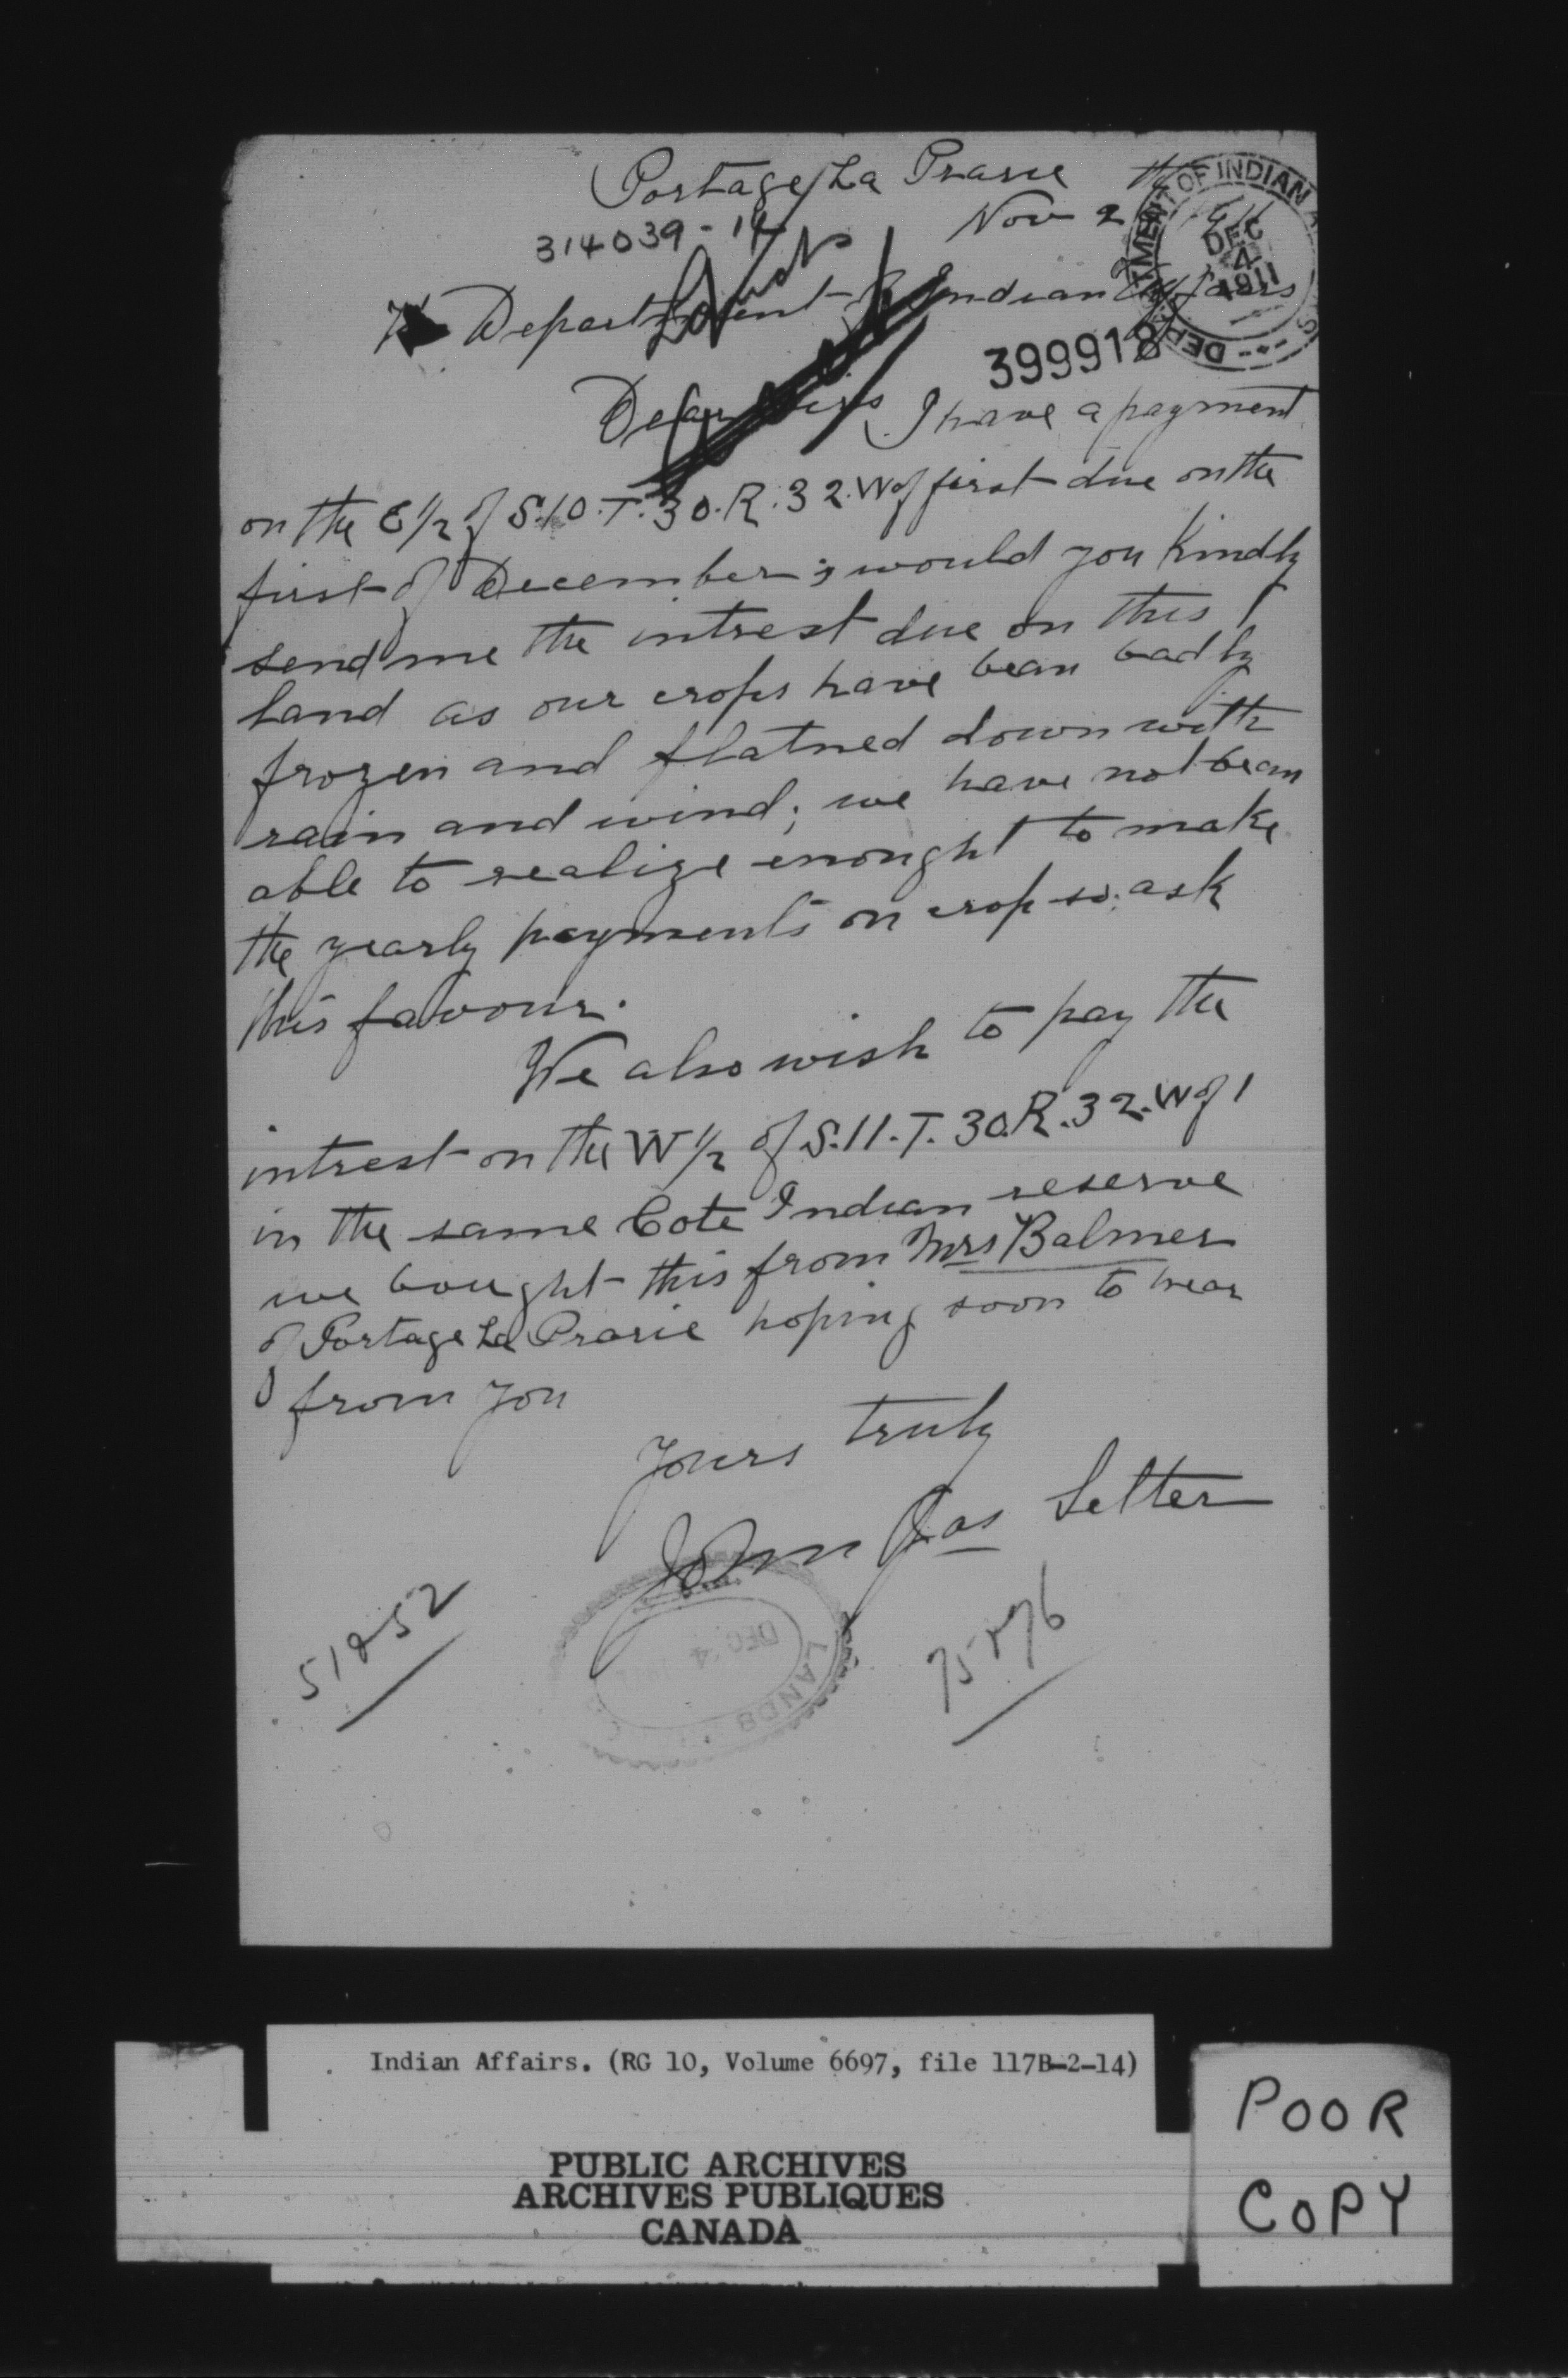 Portage La Prarie
314039-14
Nov 2
DEPARTMENT OF INDIAN
DEC
4
1911
Lands
Department of Indian Affairs
399918
Dear Sirs, I have a payment
on the E 1/2 of S.10.T.30.R.32.W of first due on the
first of December; would you Kindly
send me the intrest due on this
land as our crops have bean badly
frozen and flatned down with
rain and wind; we have not bean
able to realize enought to make
the yearly payments on crop so. ask
this favour.
We also wish to pay the
intrest on the W 1/2 of S.11.T.30.R.32.W of 1
in the same Cote Indian reserve
we bought this from Mrs Balmer
of Portage La Prarie hoping soon to hear
from you
Yours truly
John Jas Setter
51852
DEC 4
LANDS
Indian Affairs. (RG 10, Volume 6697, file 117B-2-14)
PUBLIC ARCHIVES
ARCHIVES PUBLIQUES
CANADA
POOR
COPY